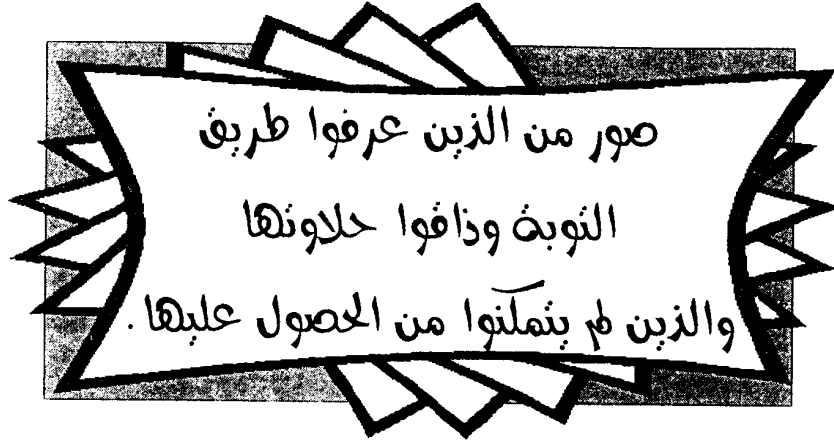 صور من الذين عرفوا طريق
التوبة وذاقوا حلاوتها
والذين لم يتمكنوا من الحصول عليها.